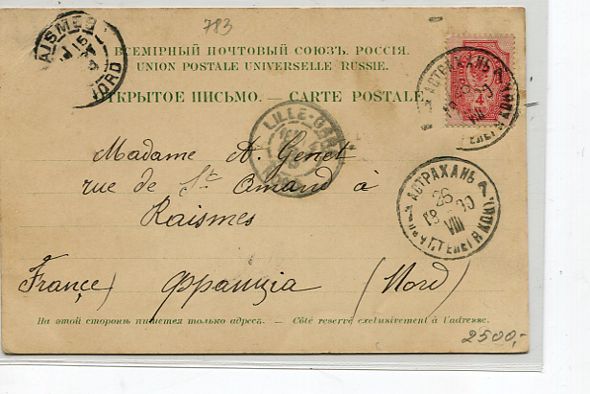 783
RAISMES
NORD
ВСЕМІРНЫЙ ПОЧТОВЫЙ СОЮЗЪ. РОССІЯ.
UNION POSTALE UNIVERSELLE RUSSIE.
ОТКРЫТОЕ ПИСЬМО. — CARTE POSTALE.
АСТРАХАНЬ
LILLE-GARE
Madame A. Genet
rue de St Amand à
Raismes
АСТРАХАНЬ
26
VIII
France) Франція (Nord)
На этой сторонѣ пишется только адресъ. — Côté réservé exclusivement à l'adresse.
2500,-